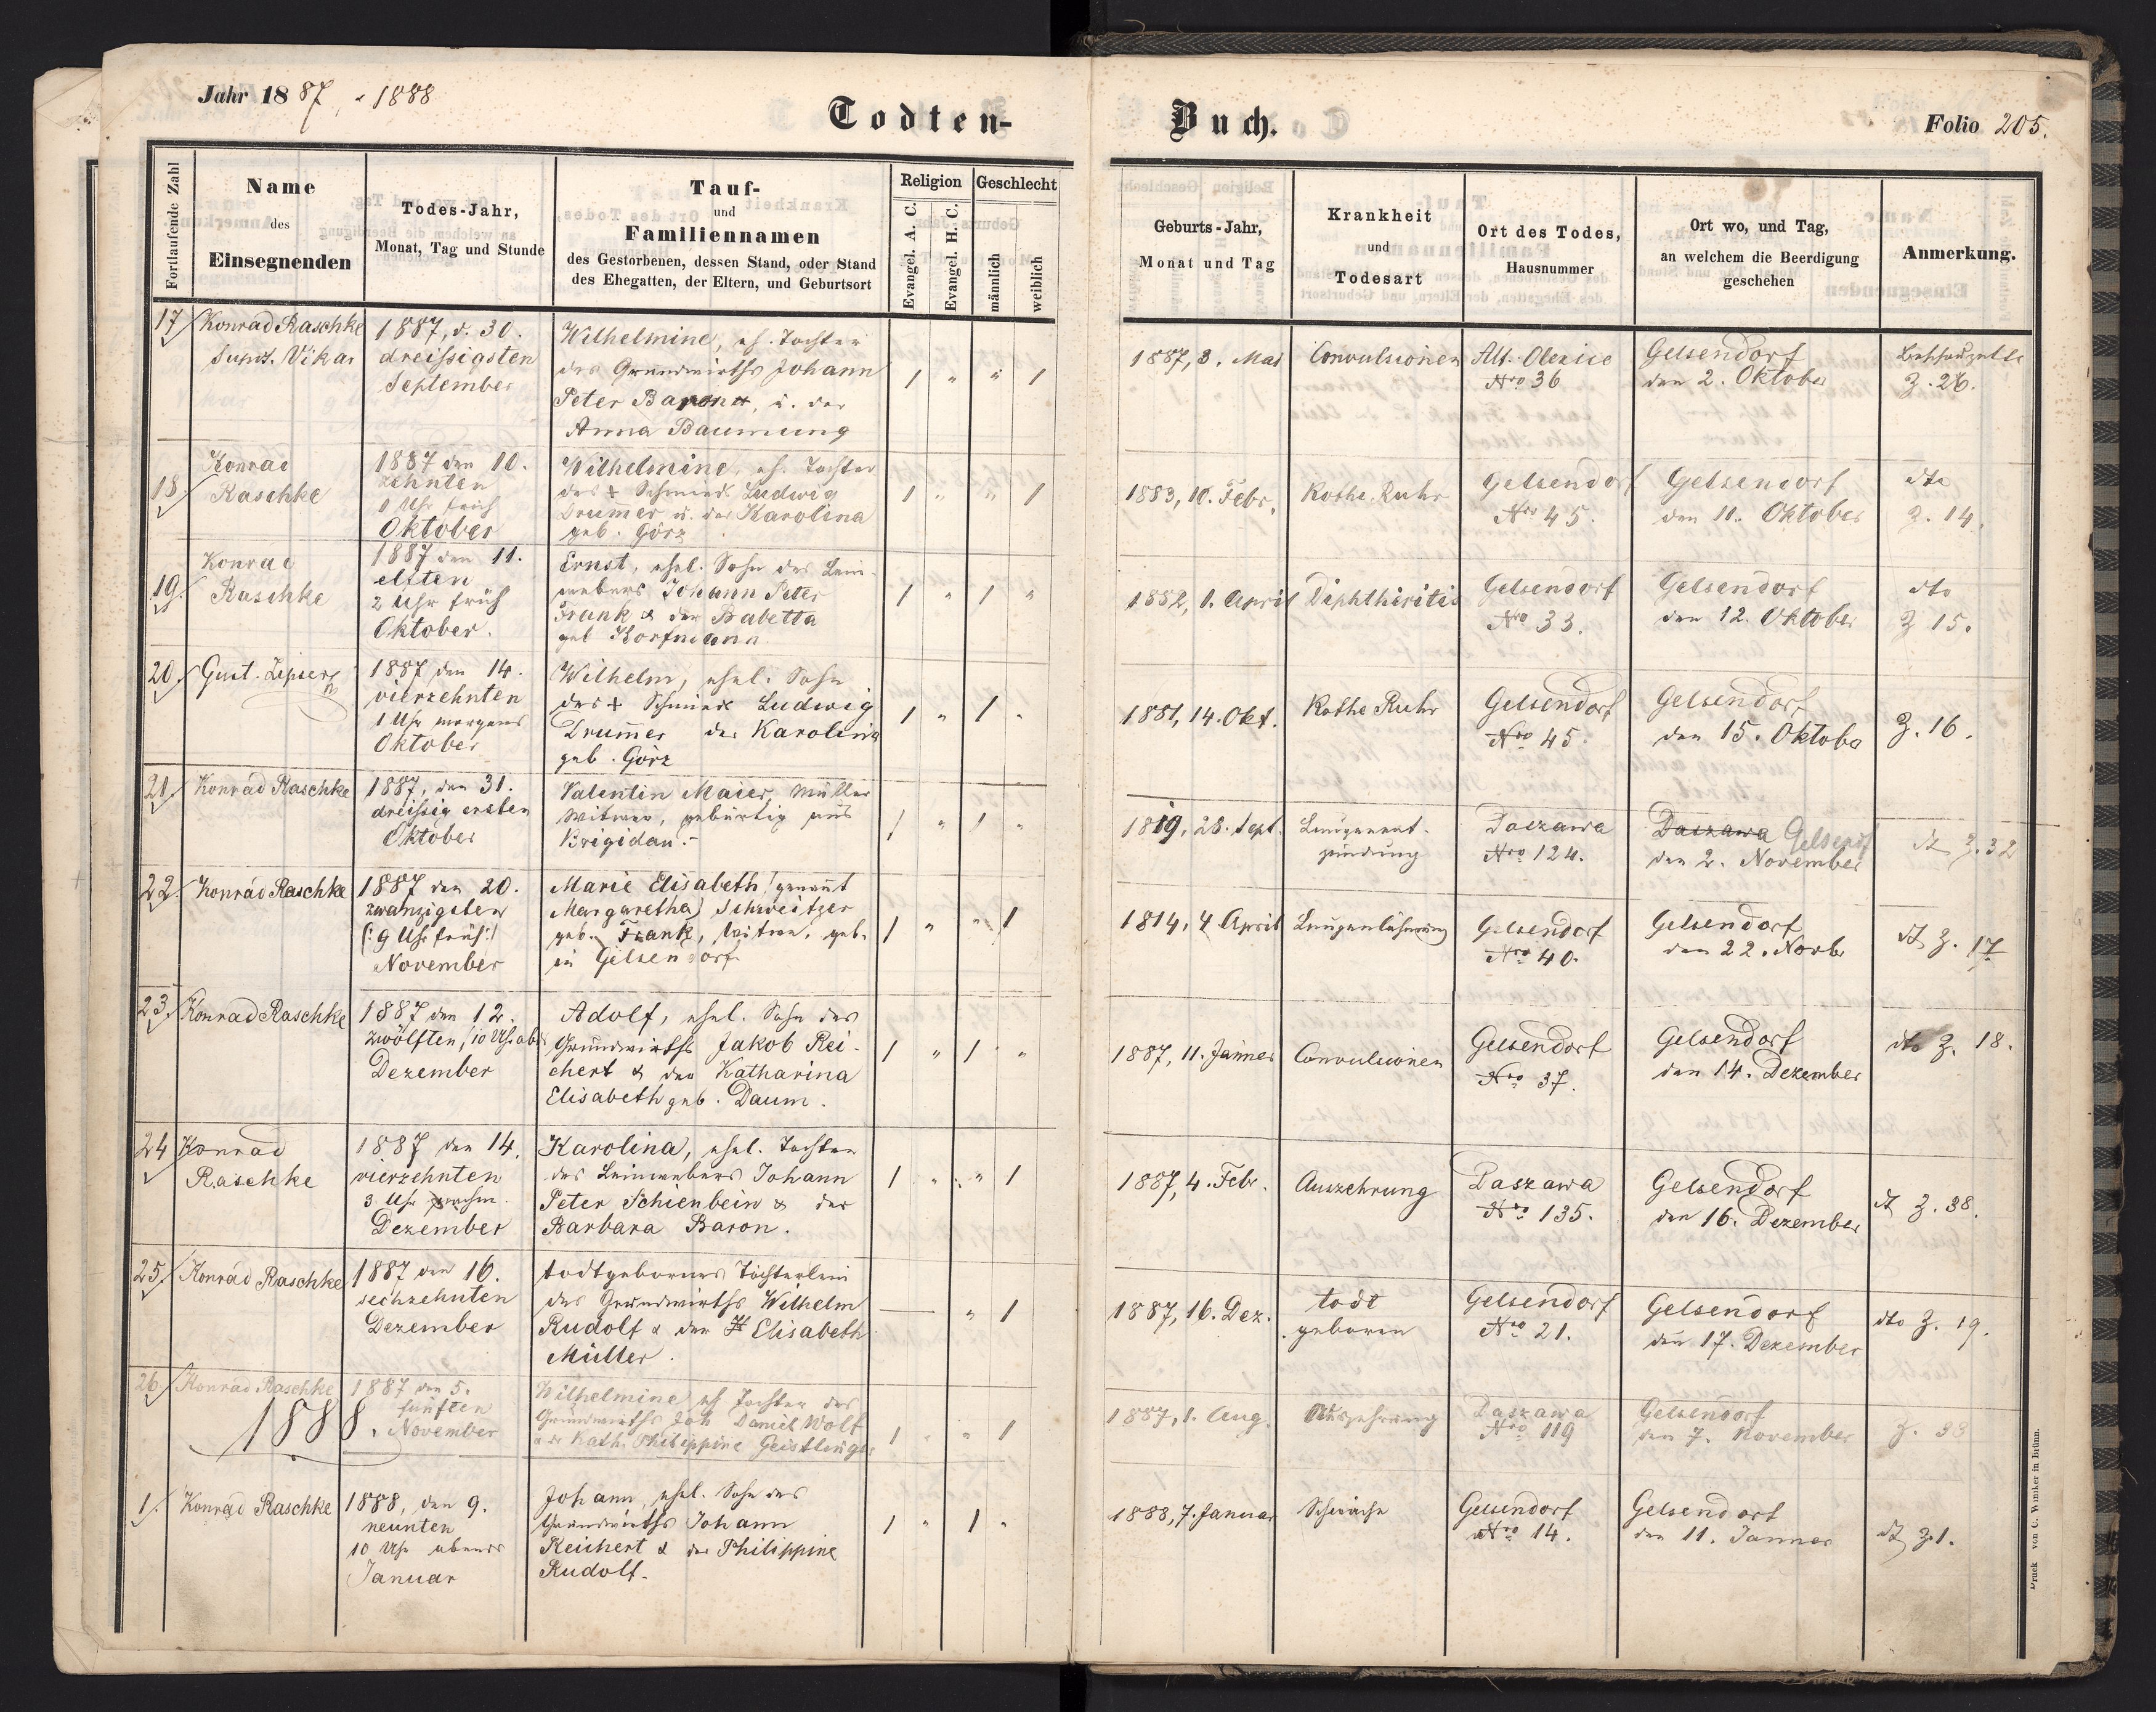 Jahr 1887, 1888
Todten-
Buch.
Folio 205.
Fortlaufende Zahl
Name
des
Einsegnenden
Todes-Jahr,
Monat, Tag und Stunde
Tauf-
und
Familiennamen
des Gestorbenen, dessen Stand, oder Stand
des Ehegatten, der Eltern, und Geburtsort
Religion
Evangel. A. C.
Evangel. H. C.
Geschlecht
männlich
weiblich
Geburts-Jahr,
Monat und Tag
Krankheit
und
Todesart
Ort des Todes,
Hausnummer
Ort wo, und Tag,
an welchem die Beerdigung
geschehen
Anmerkung.
17 Konrad Raschke
Vikar
1887, d. 30.
dreißigsten
September
Wilhelmine, eh. Tochter
des Grundwirths Johann
Peter Baron, u. der
Anna Baumung
1 " " 1
1887, 3. Mai
Convulsionen
Alt-Olexice
Nro 36
Gelsendorf
den 2. Oktober
Z. 26.
18 Konrad
Raschke
1887 den 10.
zehnten
1 Uhr früh
Oktober
Wilhelmine, eh. Tochter
des + Schmied Ludwig
Drumer u. der Karolina
geb. Görz
1 " " 1
1883, 10. Febr.
Rothe Ruhr
Gelsendorf
Nro 45.
Gelsendorf
den 11. Oktober
dto
Z. 14.
19. Konrad
Raschke
1887 den 11.
elften
2 Uhr früh
Oktober.
Ernst, ehel. Sohn des Lein-
webers Johann Peter
Frank & der Babetta
geb Korfmann
1 " 1 "
1882, 1. April
Diphtheritis
Gelsendorf
Nro 33.
Gelsendorf
den 12. Oktober
dto
Z 15.
20. Gust. Zipser
1887 den 14.
vierzehnten
1 Uhr morgens
Oktober
Wilhelm, ehel. Sohn
des + Schmied Ludwig
Drum̄er der Karolina
geb. Görz
1 " 1 "
1881, 14. Okt.
Rothe Ruhr
Gelsendorf
Nro 45.
Gelsendorf
den 15. Oktober
Z. 16.
21. Konrad Raschke
1887, den 31.
dreißig ersten
Oktober
Valentin Maier, Müller
Witwer, gebürtig aus
Brigidau.-
1 " 1 "
1819, 28. Sept.
Lungenent-
zündung
Daszawa
Nro 124.
Daszawa Gelsendf
den 2. November
dt Z. 32
22. Konrad Raschke
1887 den 20.
zwanzigsten
(: 9 Uhr früh:)
November
Marie Elisabeth (genan̄t
Margaretha) Schweitzer
geb. Frank, Witwe, geb.
in Gelsendorf
1 " " 1
1814, 4 April
Lungenlähmung
Gelsendorf
Nro 40.
Gelsendorf
den 22. Novbr
dt Z. 17
23. Konrad Raschke
1887 den 12.
zwölften, 10 Uhr ab
Dezember
Adolf, ehel. Sohn des
Grundwirths Jakob Rei-
chert & der Katharina
Elisabeth geb. Daum.
1 " 1 "
1887, 11. Jänner
Convulsionen
Gelsendorf
Nro 37.
Gelsendorf
den 14. Dezember
dto Z. 18.
24 Konrad
Raschke
1887 den 14.
vierzehnten
3 Uhr nachm.
Dezember
Karolina, ehel. Tochter
des Leinwebers Johann
Peter Schienbein & der
Barbara Baron.
1 " " 1
1887, 4. Febr.
Auszehrung
Daszawa
Nro 135.
Gelsendorf
den 16. Dezember
dt Z. 38.
25. Konrad Raschke
1887 den 16.
sechzehnten
Dezember
todtgebornes Töchterlein
des Grundwirths Wilhelm
Rudolf & der Elisabeth
Müller.
" 1
1887, 16. Dez.
todt
geboren
Gelsendorf
Nro 21.
Gelsendorf
den 17. Dezember
dto Z. 19.
26. Konrad Raschke
1887 den 5.
fünften
November
Wilhelmine eh. Tochter des
Grundwirths Joh Daniel Wolf
u. der Kath. Philippine Geistlinger
1 " " 1
1887, 1. Aug.
Auszehrung
Daszawa
Nro 119
Gelsendorf
den 7. November
Z. 33
1888.
1. Konrad Raschke
1888, den 9.
neunten
10 Uhr abends
Januar
Johann, ehel. Sohn des
Grundwirths Johann
Reichert & der Philippine
Rudolf.
1 " 1 "
1888, 7. Januar
Schwäche
Gelsendorf
Nro 14.
Gelsendorf
den 11. Jänner
dt Z. 1.
Druck von C. Winiker in Brünn.